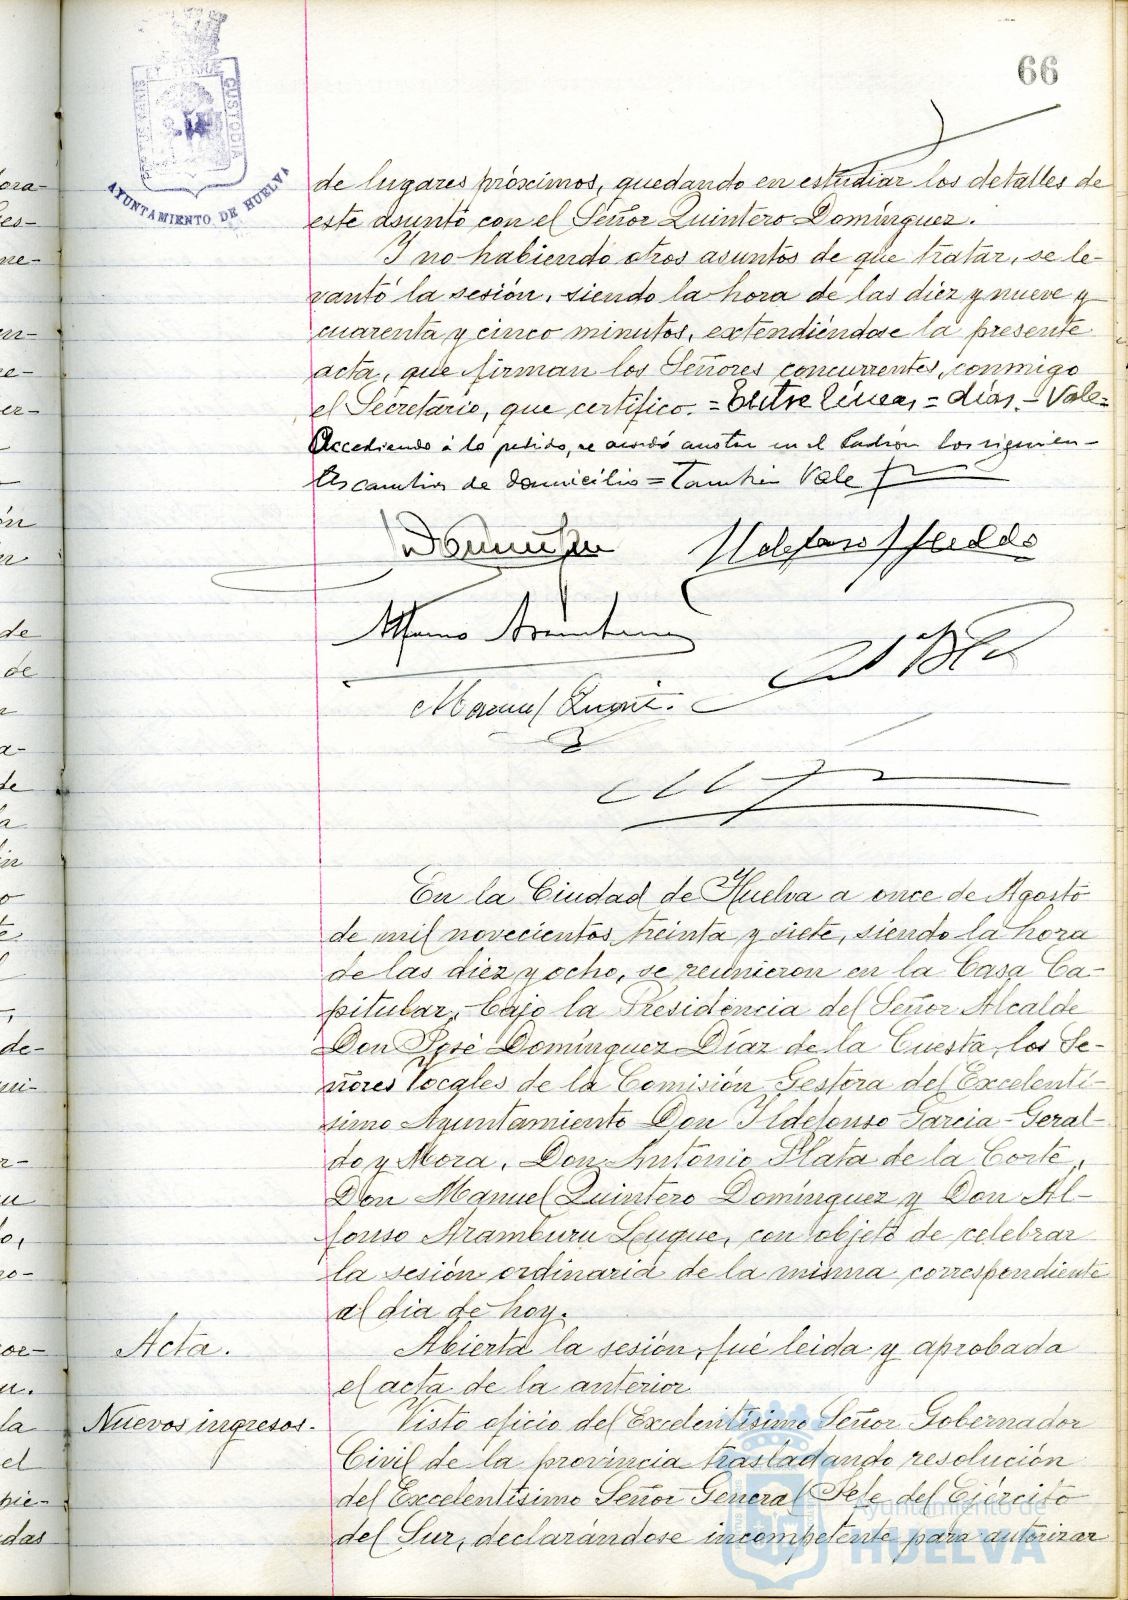 66
AYUNTAMIENTO DE HUELVA
CUSTODIA
de lugares próximos, quedando en estudiar los detalles de
este asunto con el Señor Quintero Domínguez.
Y no habiendo otros asuntos de que tratar, se le-
vantó la sesión, siendo la hora de las diez y nueve y
cuarenta y cinco minutos, extendiéndose la presente
acta, que firman los Señores concurrentes, conmigo
el Secretario, que certifico. = Entre líneas = días. = Vale =
Accediendo á lo pedido, se acordó anotar en el Padrón los siguien-
tes cambios de domicilio = También Vale
Ildefonso Geraldo
Alfonso Aramburu
Manuel Quint.
En la Ciudad de Huelva a once de Agosto
de mil novecientos treinta y siete, siendo la hora
de las diez y ocho, se reunieron en la Casa Ca-
pitular, bajo la Presidencia del Señor Alcalde
Don José Domínguez Díaz de la Cuesta, los Se-
ñores Vocales de la Comisión Gestora del Excelentí-
simo Ayuntamiento Don Ildefonso Garcia-Geral-
do y Mora, Don Antonio Plata de la Corte,
Don Manuel Quintero Domínguez y Don Al-
fonso Aramburu Luque, con objeto de celebrar
la sesión ordinaria de la misma correspondiente
al dia de hoy.
Acta.
Abierta la sesión, fué leida y aprobada
el acta de la anterior
Nuevos ingresos.
Visto oficio del Excelentísimo Señor Gobernador
Civil de la provincia trasladando resolución
del Excelentísimo Señor General Jefe del Ejército
del Sur, declarándose incompetente para autorizar
Ayuntamiento de
HUELVA